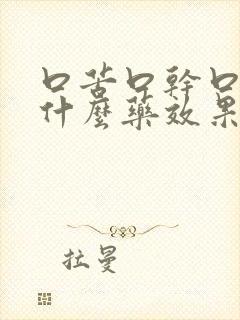 口苦口幹口
什麼藥效果
拉曼